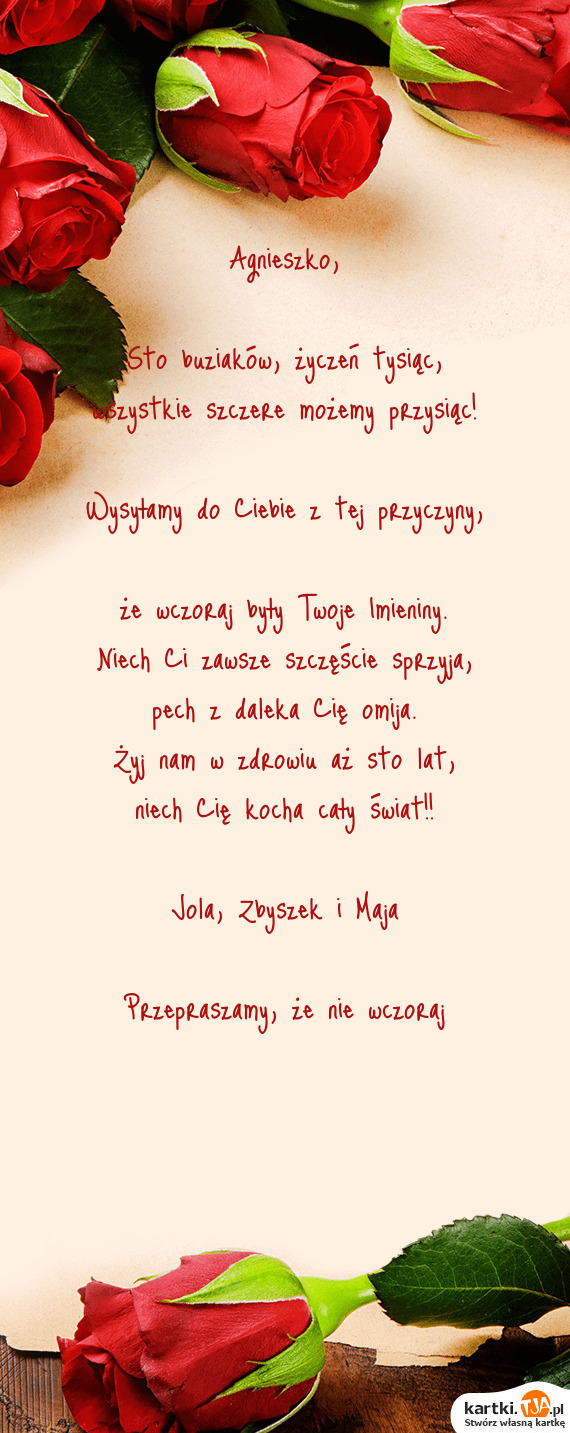 Agnieszko,
Sto buziaków, życzeń tysiąc,
wszystkie szczere możemy przysiąc!
Wysyłamy do Ciebie z tej przyczyny,
że wczoraj były Twoje Imieniny.
Niech Ci zawsze szczęście sprzyja,
pech z daleka Cię omija.
Żyj nam w zdrowiu aż sto lat,
niech Cię kocha cały świat!!
Jola, Zbyszek i Maja
Przepraszamy, że nie wczoraj
kartki.TJA.pl
Stwórz własną kartkę